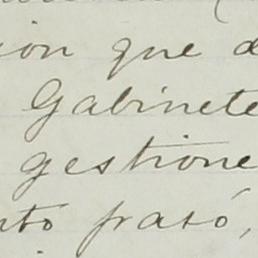 ion que d
Gabinete
gestione
nto pasó,